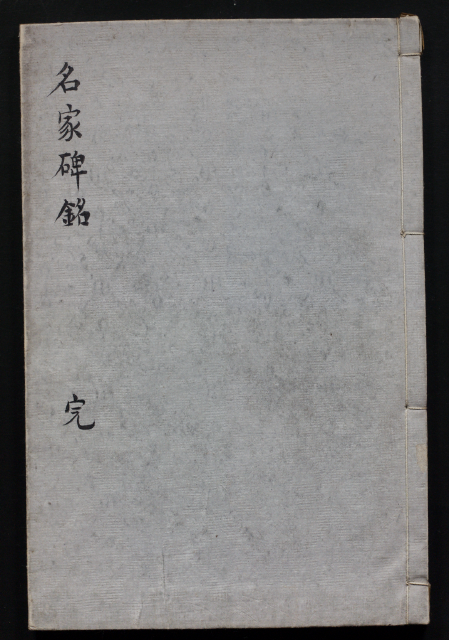 名家碑銘 完